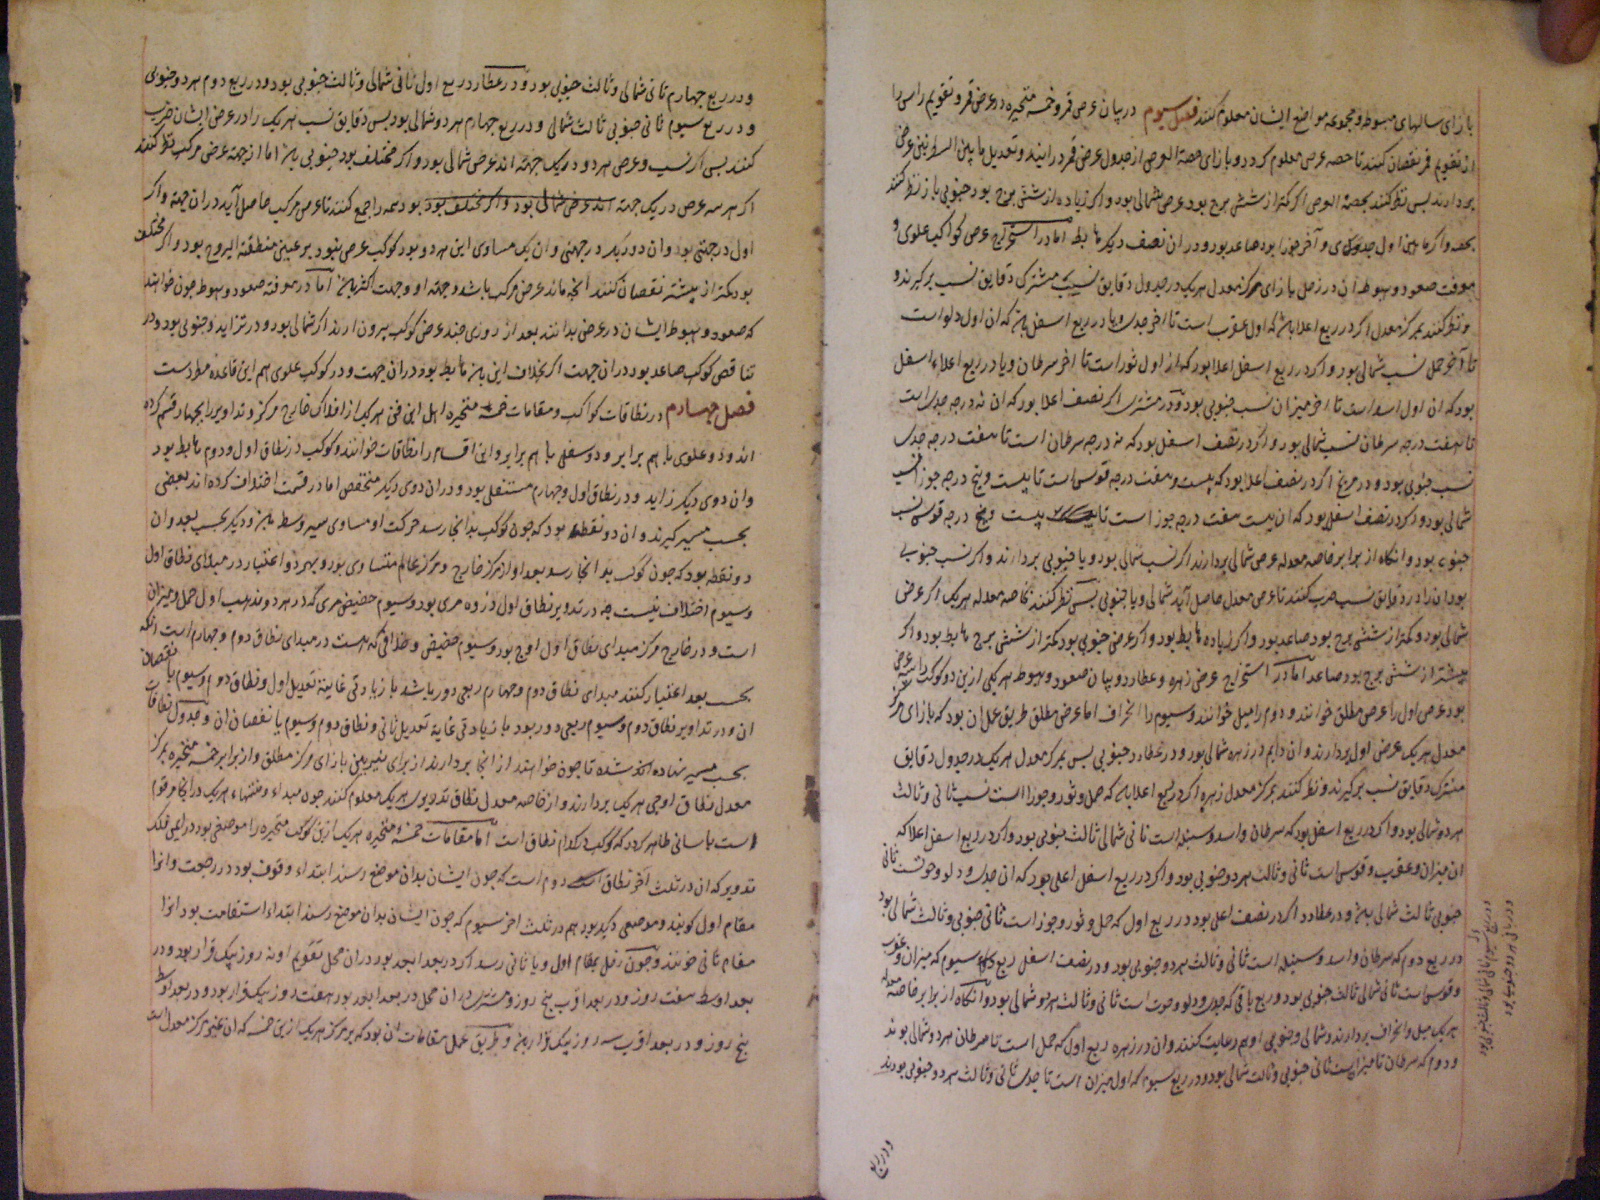 بازای سالهای مبسوطه و مجموعه مواضع ایشان معلوم کنند فصل سیوم در بیان عرض قمر و خمسه متحیره در عرض قمر و تقویم راس را
از تقویم قمر نقصان کنند تا حصه عرض معلوم کردد و بازای حصة العرض از جدول عرض قمر درایند و تعدیل ما بین السطرین عرض
بردارند پس نظر کنند بحصة العرض اگر کمتر از شش برج بود عرض شمالی بود و اگر زیاده از شش برج بود جنوبی باز نظر کنند
آخر جوزا بود صاعد بود و در ان نصف دیکر هابط اما در استخراج عرض کواکب علوی و
معرفت صعود و هبوط ان در زحل بازای مرکز معدل هریک در جدول دقایق نسب مشترک دقایق نسب برکیرند و
و نظر کنند بمرکز معدل اگر در ربع اعلا باشد که اول عقرب است تا اخر جدی و یا در ربع اسفل باشد که ان اول دلو است
تا آخر حمل نسب شمالی بود و اگر در ربع اسفل اعلا بود که از اول ثور است تا اخر سرطان و یا در ربع اعلاء اسفل
بود که ان اول اسد است تا اخر میزان نسب جنوبی بود و در مشتری اگر نصف اعلا بود که ان نه درجه جدی است
تا هفت درجه سرطان نسب شمالی بود و اگر در نصف اسفل بود که نه درجه سرطان است تا هفت درجه جدی
نسب جنوبی بود و در مریخ اگر در نصف اعلا بود که بیست و هفت درجه قوس است تا بیست و پنج درجه جوزا نسب
شمالی بود و اگر در نصف اسفل بود که ان بیست هفت درجه جوزا است تا بیست و پنج درجه قوس نسب
جنوبی بود و انکاه از برابر خاصه معدله عرض شمالی بردارند اگر نسب شمالی بود و یا جنوبی بردارند و اگر نسب جنوبی
بود ان را در دقایق نسب ضرب کنند تا عرض معدل حاصل آید شمالی و یا جنوبی پس نظر کنند بخاصه معدله هریک اگر عرض
شمالی بود و کمتر از شش برج بود صاعد بود و اگر زیاده هابط بود و اگر عرض جنوبی بود کمتر از شش برج هابط بود و اگر
بیشتر از شش برج بود صاعد اما در استخراج عرض زهره و عطارد و بیان صعود و هبوط هریکی ازین دو کوکب را سه عرض
بود عرض اول را عرض مطلق خوانند و دوم را میل خوانند و سیوم را انحراف اما عرض مطلق طریق عمل ان بود که بازای مرکز
معدل هریک عرض اول بردارند و ان دایم در زهره شمالی بود و در عطارد جنوبی پس بمرکز معدل هریک در جدول دقایق
مشترک دقایق نسب برگیرند و نظر کنند بمرکز معدل زهره اگر در ربع اعلا باشد که حمل و ثور و جوزا است نسب ثانی و ثالث
هردو شمالی بود و اگر در ربع اسفل بود که سرطان و اسد و سنبله است ثانی شمالی ثالث جنوبی بود و اگر در ربع اسفل اعلا که
ان میزان و عقرب و قوس است ثانی و ثالث هردو جنوبی بود و اگر در ربع اسفل اعلی بود که ان جدی و دلو و حوتست ثانی
جنوبی ثالث شمالی باشد و در عطارد اگر در نصف اعلی بود در ربع اول که حمل و ثور و جوزا است ثانی جنوبی و ثالث شمالی بود
در ربع دوم که سرطان و اسد و سنبله است ثانی و ثالث هردو جنوبی بود و در نصف اسفل ربع سیوم که میزان و عقرب
و قوس است ثانی شمالی ثالث جنوبی بود و ربع باقی که جدی و دلو و حوت است ثانی و ثالث هردو شمالی بود و انکاه از برابر خاصه معدله
هریک میل و انحراف بردارند و شمالی و جنوبی او هم رعایت کنند و ان در زهره ربع اول که حمل است تا سرطان هردو شمالی بوند
و دوم که سرطان تا میزان است ثانی جنوبی و ثالث شمالی بود و در ربع سیوم که اول میزان است تا جدی ثانی و ثالث هردو جنوبی بودند
و در ربع
و در ربع چهارم ثانی شمالی و ثالث جنوبی بود و در عطارد در ربع اول ثانی شمالی و ثالث جنوبی بود و در ربع دوم هردو جنوبی
و در ربع سیوم ثانی جنوبی ثالث شمالی و در ربع چهارم هردو شمالی بود پس دقایق نسب هریک را در عرض ایشان ضرب
کنند پس اگر نسب و عرض هردو در یک جهة اند عرض شمالی بود و اگر مختلف بود جنوبی باشد اما از جهة عرض مرکب نظر کنند
اگر هر سه عرض در یک جهة اند عرض شمالی بود و اگر مختلف بود بود همه را جمع کنند تا عرض مرکب حاصل آید در ان جهة و اگر
اول در جهتی بود و ان دو دیکر در جهتی و ان یک مساوی این هردو بود کوکب عرض نبود بر عین منطقة البروج بود و اگر مختلف
بود کمتر از بیشتر نقصان کنند انچه ماند عرض مرکب باشد و جهة او و جهت اکثر باشد اما در معرفة صعود و هبوط چون خواهند
که صعود و هبوط ایشان در عرض بدانند بعد از روزی چند عرض کوکب بیرون ارند اگر شمالی بود و در تزاید و جنوبی بود و در
تناقص کوکب صاعد بود در ان جهت اگر بخلاف این باشد هابط بود در ان جهت و در کوکب علوی هم این قاعده مطرد است
فصل چهارم در نطاقات کواکب و مقامات خمسه متحیره اهل این فن هریک از افلاک خارج مرکز و تداویر را بچهار قسم کرده
اند دو علوی با هم برابر و دو سفلی با هم برابر و این اقسام را نطاقات خوانند و کوکب در نطاق اول و دوم هابط بود
و ان دوی دیکر زاید و در نطاق اول و چهارم مستعلی بود و در ان دوی دیکر منخفض اما در قسمت اختلاف کرده اند بعضی
بحسب مسیر گیرند و ان دو نقطه بود که چون کوکب بدانجا رسد حرکت او مساوی مسیر وسط باشد و دیکر بحسب بعد و ان
دو نقطه بود که چون کوکب بدانجا رسد بعد او از مرکز خارج و مرکز عالم متساوی بود و بهر دو اعتبار در مبدای نطاق اول
و سیوم اختلاف نیست چه در تدویر نطاق اول ذروه مری بود و سیوم حضیض مری که در هردو مذهب اول حمل و میزان
است و در خارج مرکز مبدای نطاق اول اوج بود و سیوم حضیض و خلافی که هست در مبدای نطاق دوم و چهارم است انکه
بحسب بعد اعتبار کنند مبدای نطاق دوم و چهارم ربعی دور باشد با زیادتی غایة تعدیل اول و نطاق دوم و سیوم با نقصان
ان و در تداویر نطاق دوم و سیوم ربعی دور بود با زیادتی غایة تعدیل ثانی و نطاق دوم و سیوم با نقصان ان و جدول نطاقات
بحسب مسیر نهاده اند شده تا چون خواهند از انجا بردارند از برای نیرین بازای مرکز مطلق و از برابر خمسه متحیره بمرکز
معدل نطاق اوجی هریک بردارند و از خاصه معدل نطاق تدویری هریک معلوم کنند چون مبداء و منتهاء هریک در انجا مرقوم
است باسانی ظاهر کردد که کوکب در کدام نطاق است اما مقامات خمسه متحیره هریک ازین کوکب متحیره را موضعی بود در اعلی فلک
تدویر که ان در ثلث آخر نطاق دوم است که چون ایشان بدان موضع رسند ابتداء وقوف بود در رجعت و انرا
مقام اول کویند و موضعی دیکر بود هم در ثلث اخر سیوم که چون ایشان بدان موضع رسند ابتداء استقامت بود انرا
مقام ثانی خوانند و چون زحل بمقام اول و یا ثانی رسد اگر در بعد ابعد بود در ان محل تقویم او نه روز بیک قرار بود و در
بعد اوسط هفت روز و در بعد اقرب پنج روز و مشتری در ان محل در بعد ابعد بود هفت روز بیک قرار بود و در بعد اوسط
پنج روز و در بعد اقرب سه روز بیک قرار باشد و طریق عمل مقامات ان بود که بر مرکز هریک ازین خمسه که ان غیر مرکز معدل است